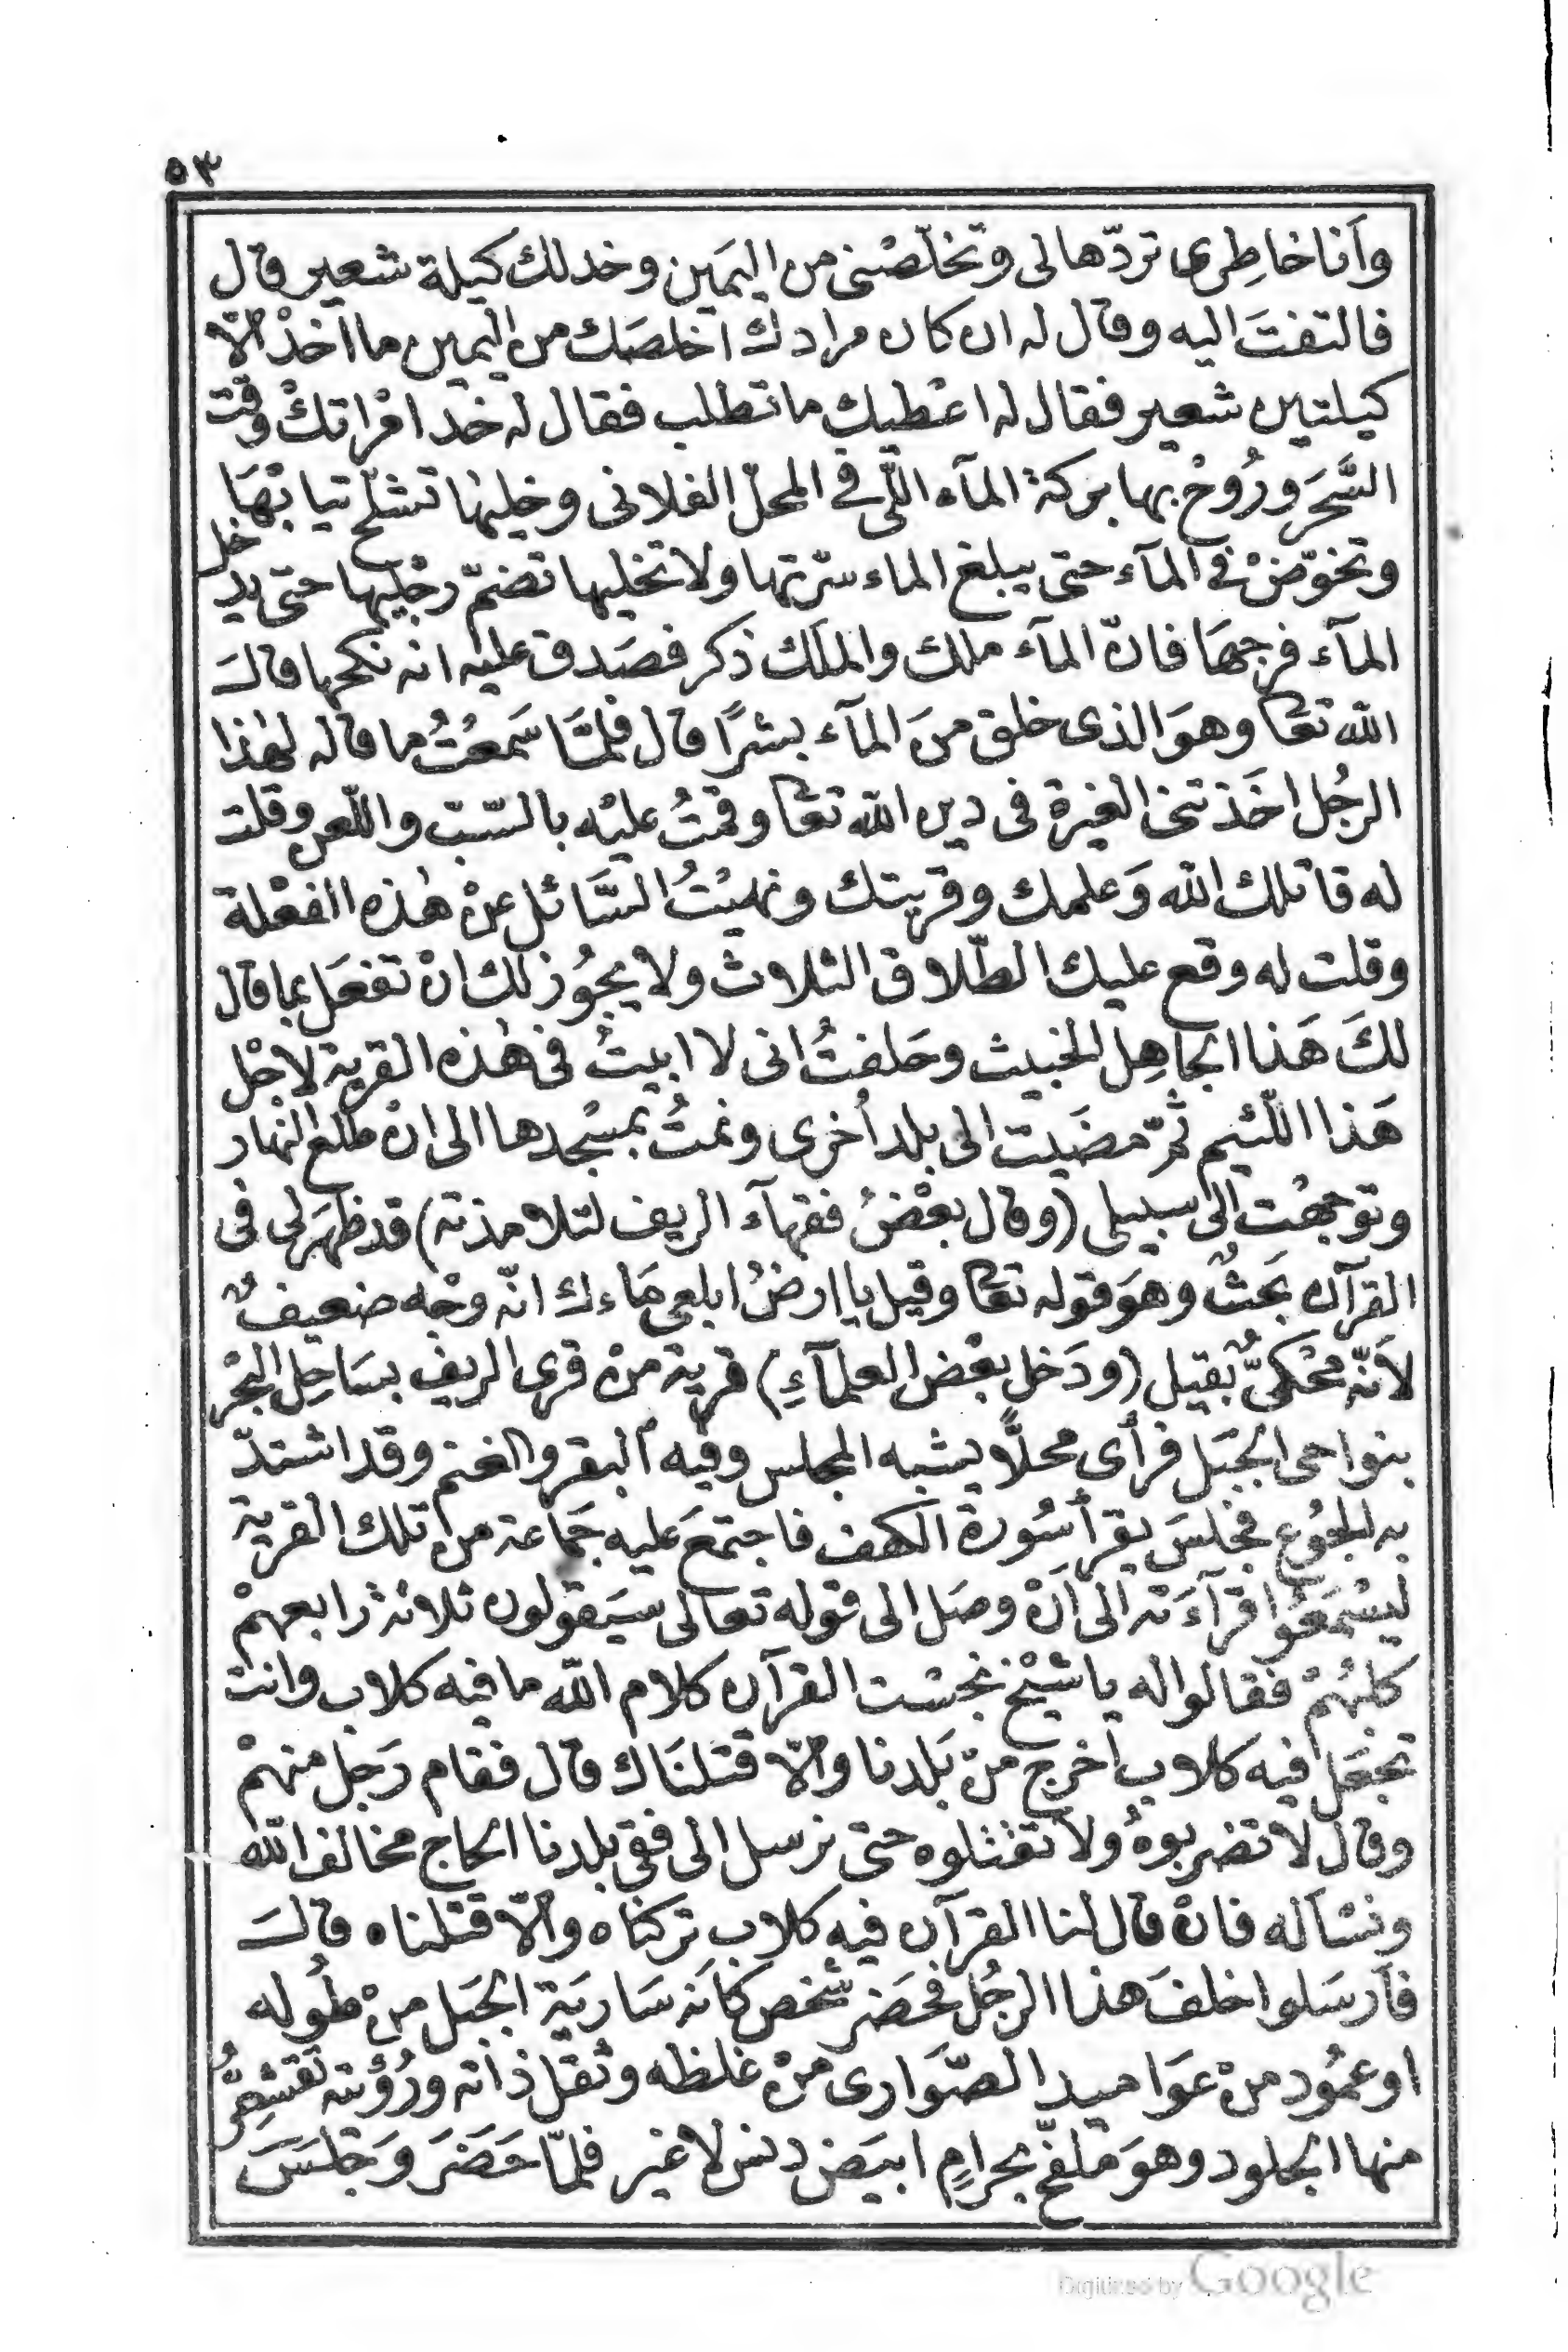 ٥٣
وأنا خاطِرى تردّها لى وتخلّصْنى من اليَمين وخد لك كيلة شعير قال
فالتفتَ اليه وقال له ان كان مرادك اخلصَك من اليمين ما اخدْ الّا
كيلتين شعير فقال له اعْطيك ما تطلب فقال له خد امْراتكْ وقت
السَّحَر ورُوحْ بها بركة المآء اللّى فى المحلّ الفلانى وخليها تشلّح تيابهَا
وتخوّضْ فى المآء حتى يبلغ الماء سرّتها ولا تخليها تضمّ رجْليها حتى يدخل
المآء فرجهَا فانّ المآء ملك والملَك ذكر فصَدق عليْه انه نكحها قال
الله تعا وهوَ الذى خلق منَ المآء بشرًا قال فلمَّا سَمعْتُ ما قاله لهذا
الرجُل اخَذتنى الغيرة فى دين الله تعا وقمتُ عليْه بالسّبّ واللّعن وقلت
له قاتلك الله وَعلمك وقريتك ونهيْتُ السَّائل عنْ هٰذه الفعْلة
وقلت له وقع عليك الطّلاق الثلاث ولا يجُوز لك انْ تفعَل بما قال
لكَ هَذا الجاهِل الخبيث وحَلفتُ انى لا ابيتُ فى هٰذه القرية لاجْل
هَذا اللّئيم ثمّ مضَيت الى بلد اُخرى ونمتُ بمسْجدها الى انْ طلع النهار
وتوجّهْت الى سبيلى (وقال بعْضُ فقهآء الريف لتلامذته) قد ظهَر لى فى
القرآن بَحثٌ وهوَ قوله تعا وقيل يا ارضُ ابلعى مَاءك انّه وجْه ضعيفٌ
لأنّه محْكىٌّ بقيل (ودَخل بعْض العلمآءِ) قرية منْ قرى الريف بسَاحِل البحْر
بنواحى الجبَل فرأى محلًّا يشبه المجلس وفيه البقر والغنم وقد اشتدّ
به الجوُع فجلسَ يقرأ سُورة الكهف فاجتمعَ عليه جَماعة من تلك القرية
ليسْمَعُوا قرآءَته الى انْ وصَل الى قوله تعالى سيَقولون ثلاثة رابعهمْ
كلبُهمْ فقالوا له يا شيْخ نجسْت القرآن كلام الله ما فيه كلاب وانت
تجعَل فيه كلاب اخرج منْ بَلدنا والّا قتلنَاك قال فقام رَجل منهمْ
وقال لا تضربوهُ ولا تقتلوه حتى نرسل الى فقى بلدنا الحاج مخالف الله
ونسْأله فانْ قال لنا القرآن فيه كلاب تركناه والّا قتلناه قالَ
فأرسَلوا خلفَ هذا الرجُل فحَضر شخص كأنه سَارية الجبَل منْ طُوله
او عمُود منْ عوَاميد الصّوَارى منْ غلظه وثقل ذاته ورُؤيته تقشعِرُّ
منها الجلود وهوَ ملفّع بحِرامٍ ابيَض دنس لا غير فلمّا حَضَرَ وَجَلسَ
Digitized by Google